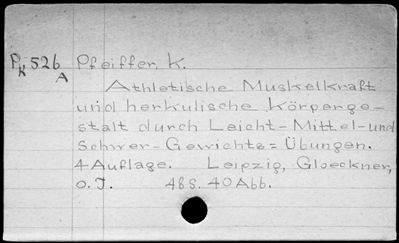 Pk 526 A Pfeiffer, K.
Athletische Muskelkraft
und herkulische Körperge-
stalt durch Leicht-Mittel-und
Schwer-Gewichts=Übungen.
4 Auflage. Leipzig, Gloeckner,
o. J. 48 S. 40 Abb.